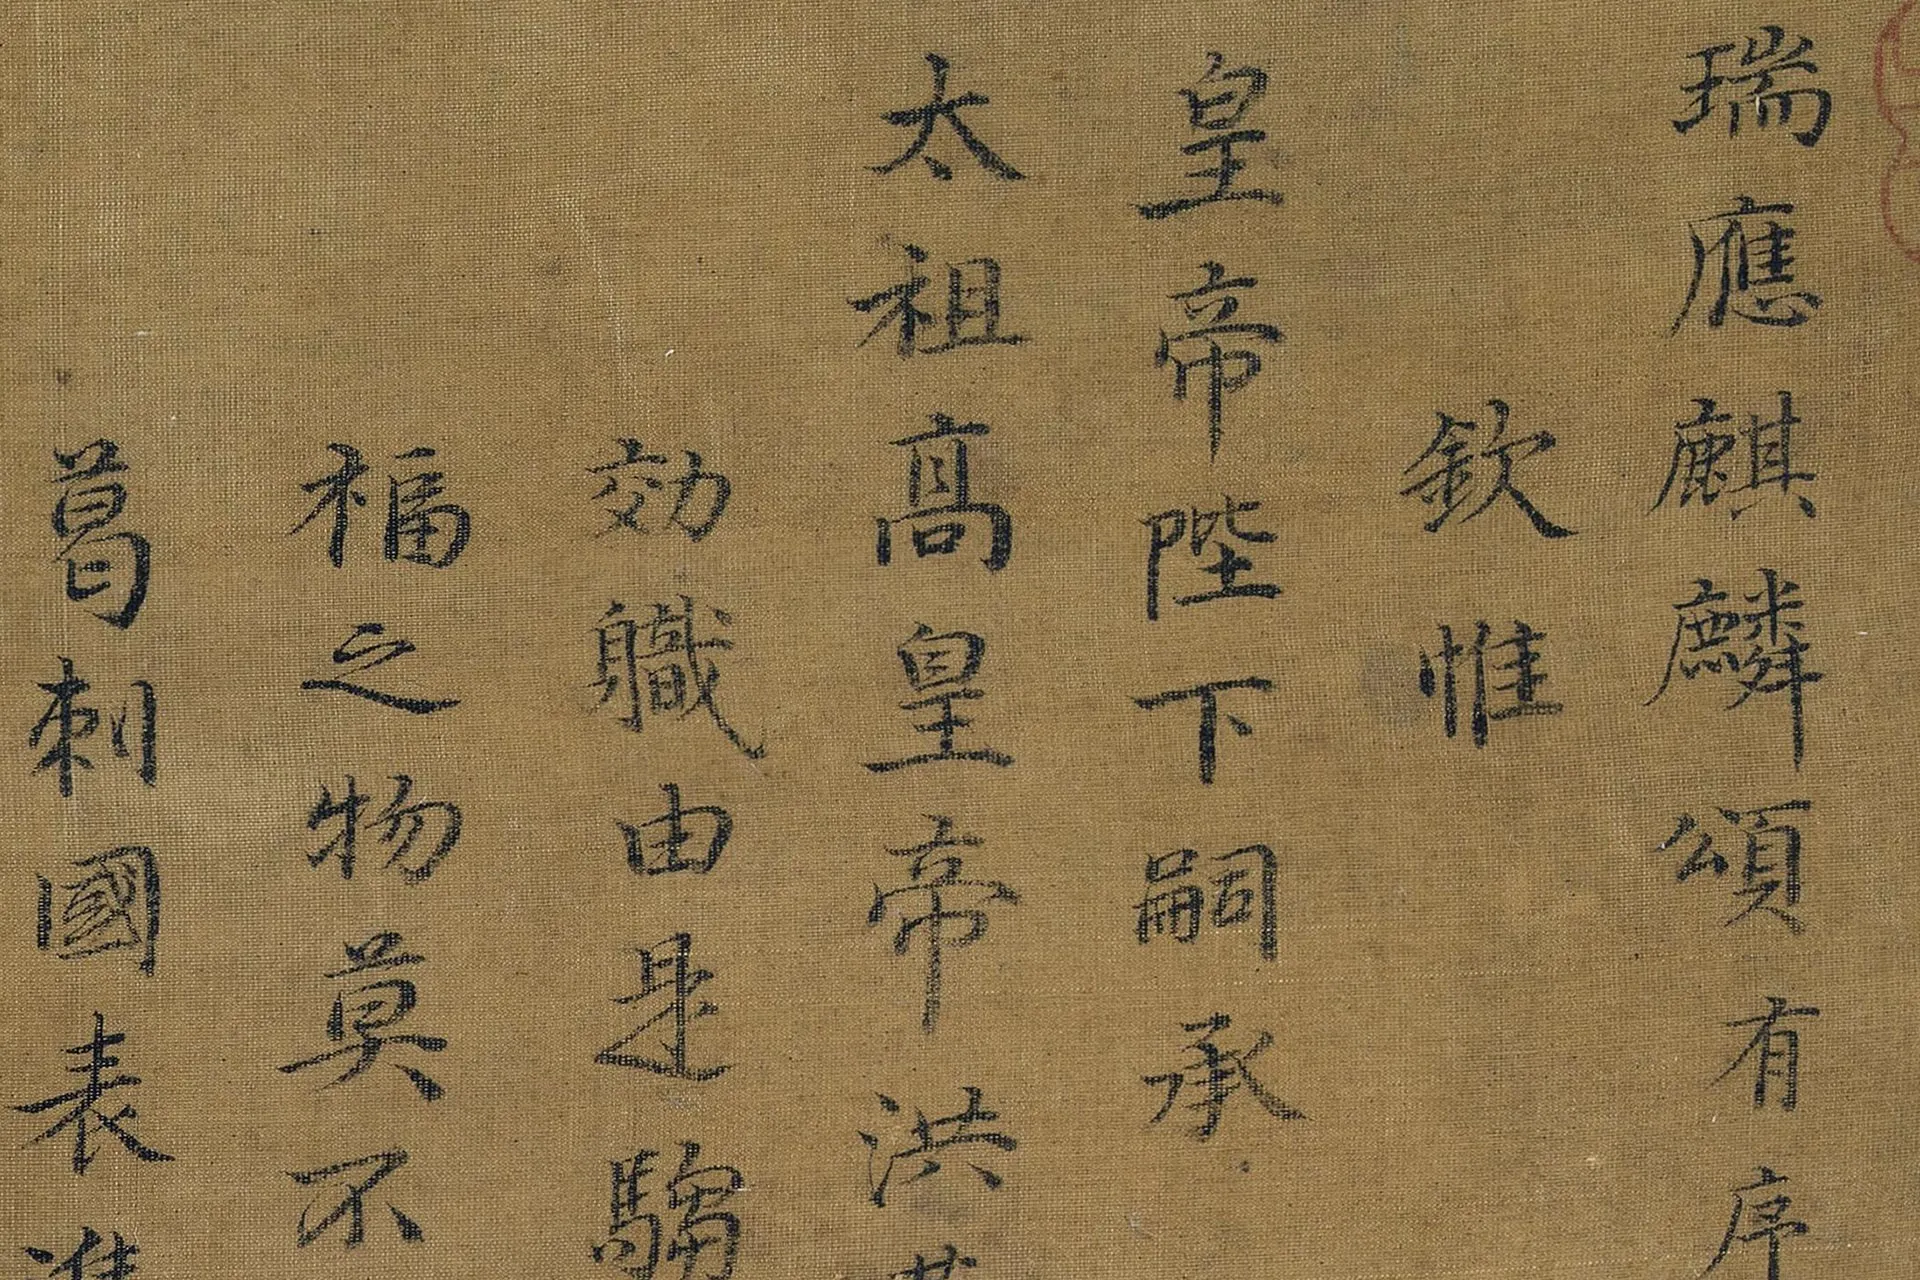 瑞應麒麟頌有序
欽惟
皇帝陛下嗣承
太祖高皇帝洪
効軄由是騶
福之物莫不
葛剌國表進